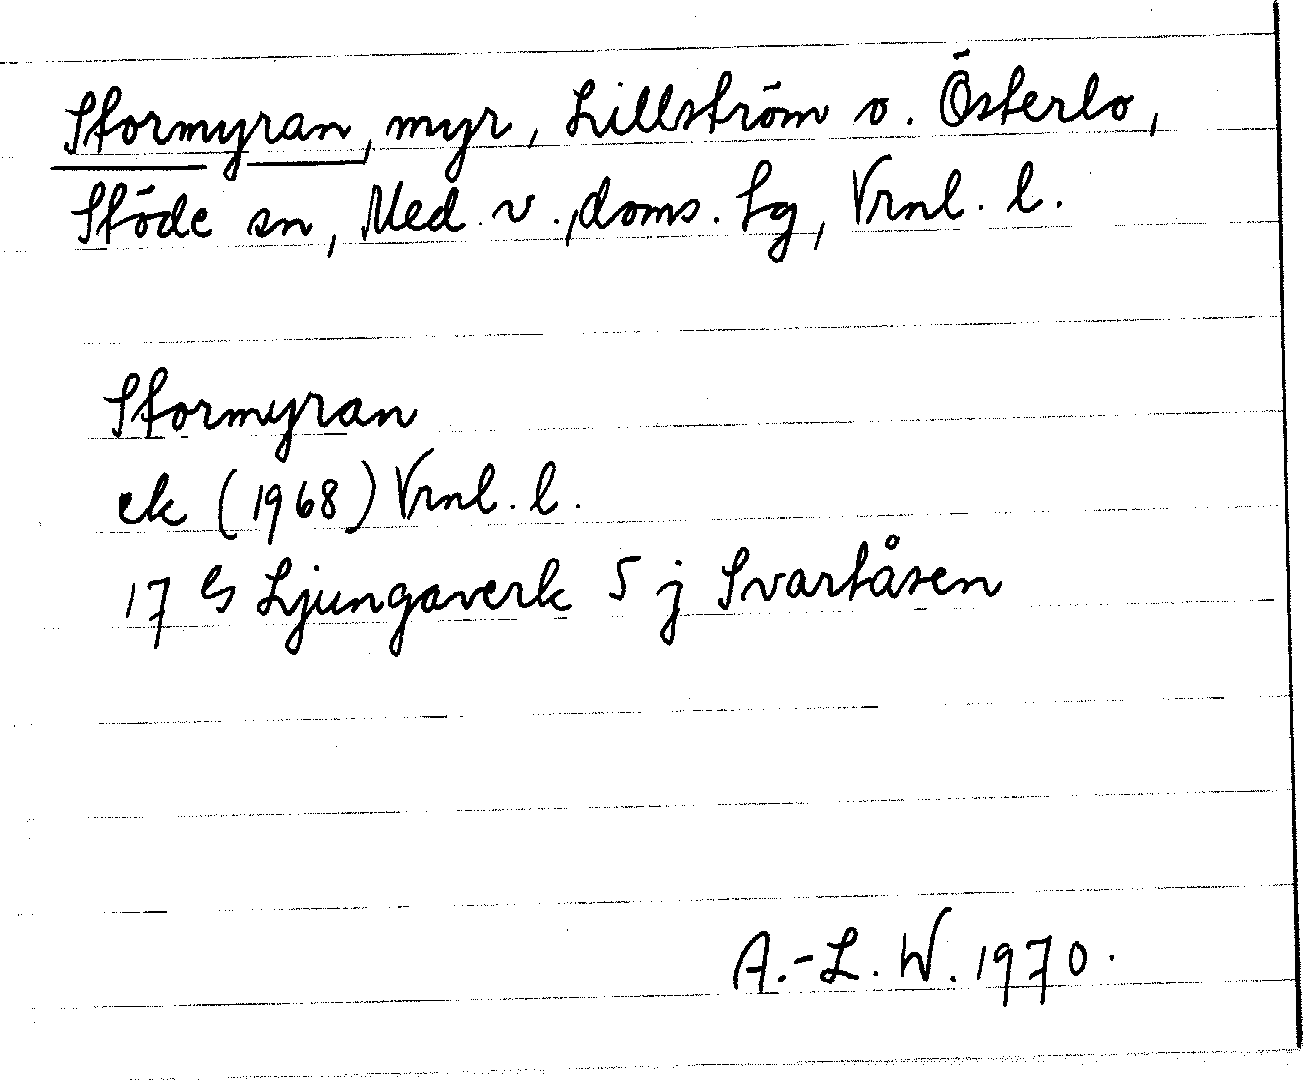 Stormyran, myr, Lillström o. Österlo,
Stöde sn, Med. v., doms. tg, Vrnl. l.
Stormyran
ek (1968) Vrnl. l.
17 G Ljungaverk 5 j Svartåsen
A.-L. W. 1970.